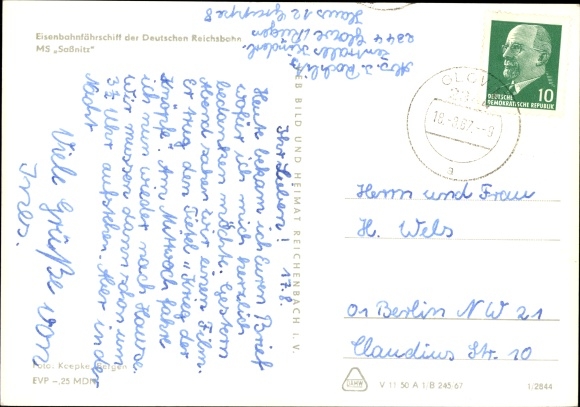 Eisenbahnfährschiff der Deutschen Reichsbahn
MS „Saßnitz"
Abs. J. Rochlitz
zentrales Kinderl.
2344 Glowe/Rügen
Haus 12 Gruppe 8
Ihr Lieben! 17.8.
Heute bekam ich Euren Brief
wofür ich mich herzlich
bedanken möchte. Gestern
Abend sahen wir einen Film.
Er trug den Titel „Krieg der
Knöpfe". Am Mittwoch fahre
ich nun wieder nach Hause.
Wir müssen dann schon um
3½ Uhr aufstehen. Aber in der
Nacht
Viele Grüße von
Ines.
VEB BILD UND HEIMAT REICHENBACH I. V.
Foto: Koepke, Bergen
EVP –,25 MDN
GLOWE
18.-8.67.--9
a
10
DEUTSCHE
DEMOKRATISCHE REPUBLIK
Herrn und Frau
H. Wels
01 Berlin NW 21
Claudius Str. 10
V 11 50 A 1/B 245 67
1/2844